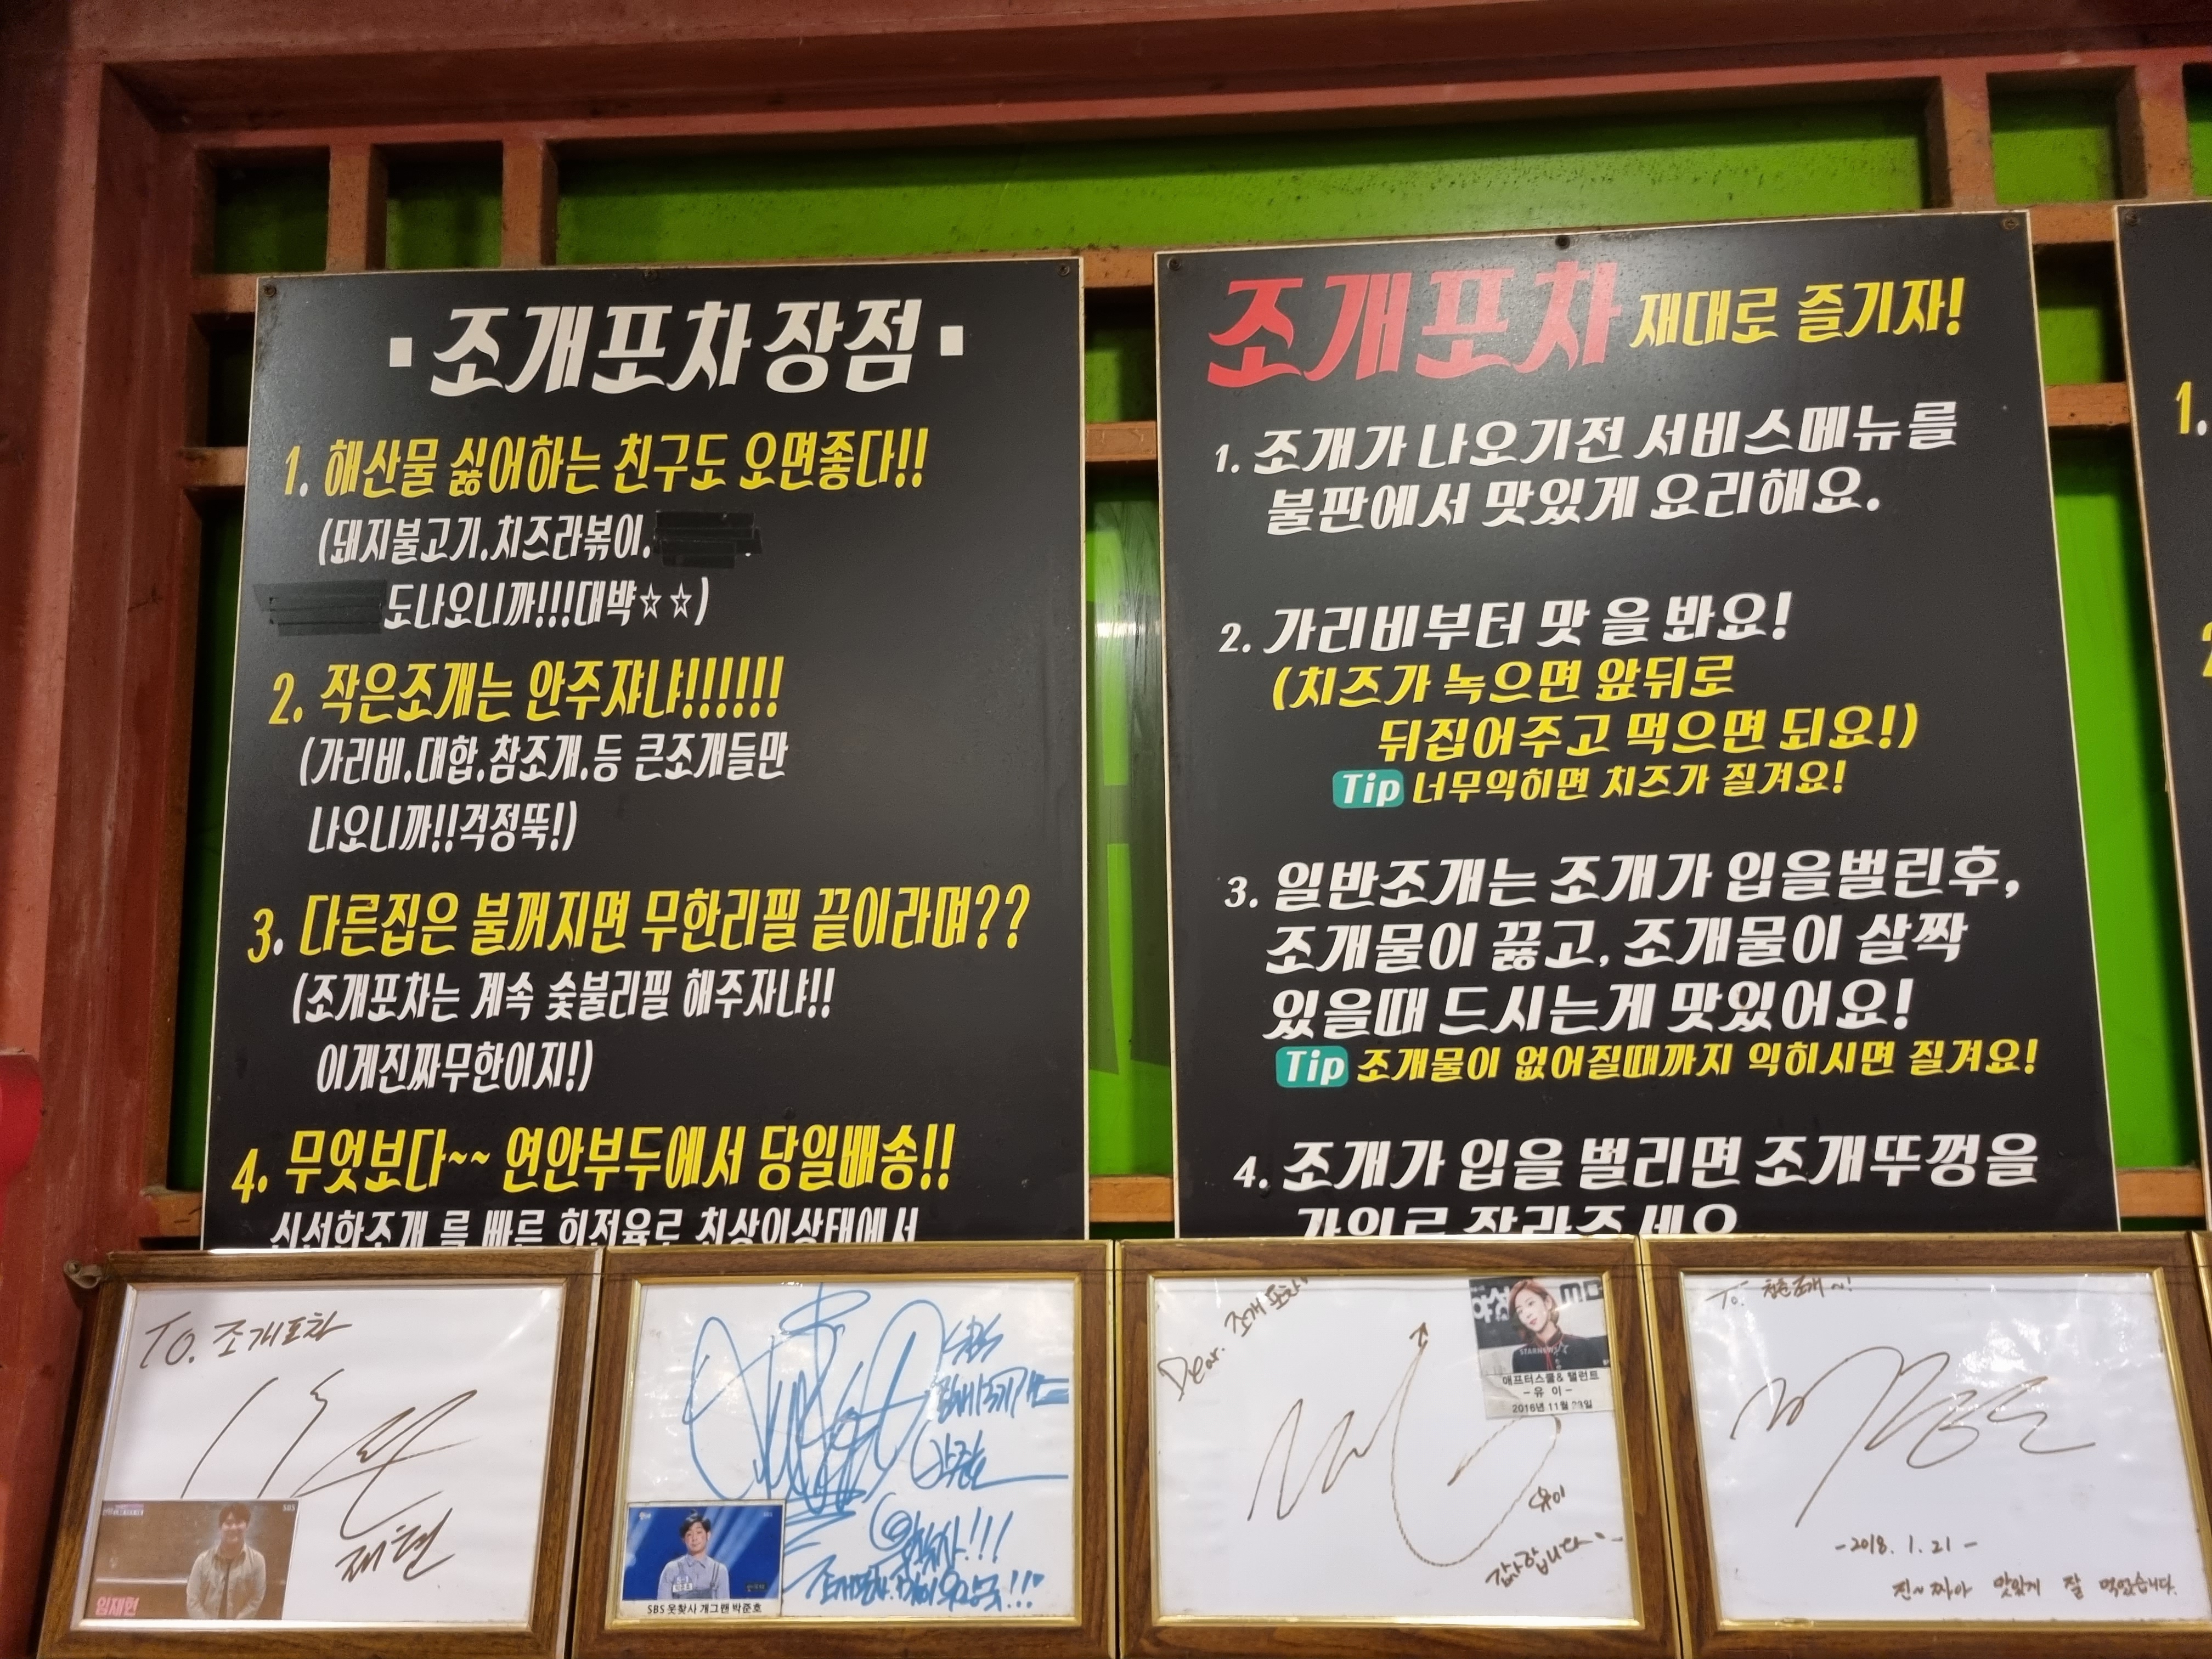 ▪조개포차장점▪
1. 해산물 싫어하는 친구도 오면좋다!!
(돼지불고기,치즈라볶이,
도나오니까!!!대박☆☆)
2. 작은조개는 안주쟈냐!!!!!!
(가리비,대합,참조개,등 큰조개들만
나오니까!!걱정뚝!)
3. 다른집은 불꺼지면 무한리필 끝이라며??
(조개포차는 계속 숯불리필 해주자냐!!
이게진짜무한이지!)
4. 무엇보다~~ 연안부두에서 당일배송!!
신선한조개 를 빠른 회전율로 최상의상태에서
조개포차 재대로 즐기자!
1. 조개가 나오기전 서비스메뉴를
불판에서 맛있게 요리해요.
2. 가리비부터 맛 을 봐요!
(치즈가 녹으면 앞뒤로
뒤집어주고 먹으면 되요!)
Tip 너무익히면 치즈가 질겨요!
3. 일반조개는 조개가 입을벌린후,
조개물이 끓고, 조개물이 살짝
있을때 드시는게 맛있어요!
Tip 조개물이 없어질때까지 익히시면 질겨요!
4. 조개가 입을 벌리면 조개뚜껑을
가위로 잘라주세요
1.
2
TO. 조개포차
재현
SBS
임재현
SBS
SBS 웃찾사 개그맨 박준호
Dear. 조개포차
STARNEWS
애프터스쿨& 탤런트
- 유 이 -
2016년 11월 23일
유이
감사합니다
To. 청춘조개~!
-2018. 1. 21 -
진~짜아 맛있게 잘 먹었습니다.